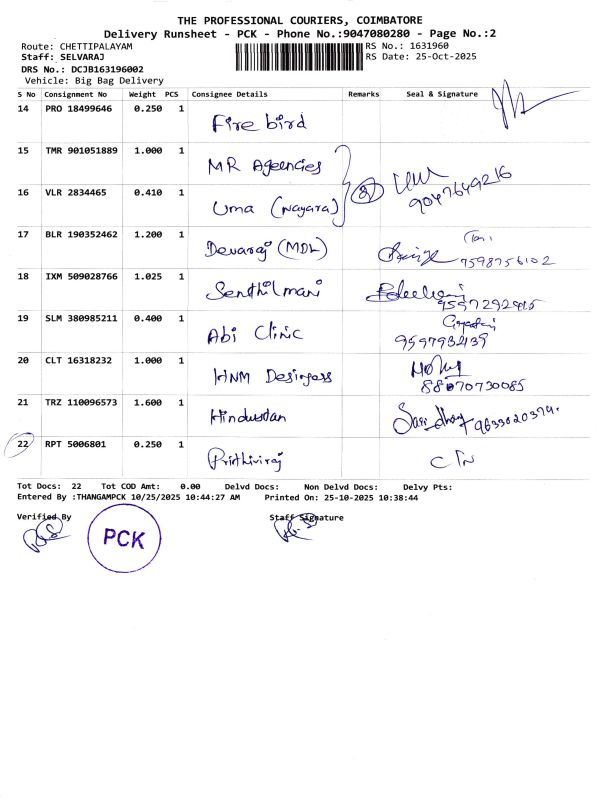 THE PROFESSIONAL COURIERS, COIMBATORE
Delivery Runsheet - PCK - Phone No.:9047080280 - Page No.:2
Route: CHETTIPALAYAM RS No.: 1631960
Staff: SELVARAJ RS Date: 25-Oct-2025
DRS No.: DCJB163196002
Vehicle: Big Bag Delivery
S No Consignment No Weight PCS Consignee Details Remarks Seal & Signature
14 PRO 18499646 0.250 1 Fire bird
15 TMR 901051889 1.000 1 MR Ageencies
16 VLR 2834465 0.410 1 Uma (Nayara) 2 9047649216
17 BLR 190352462 1.200 1 Devaraj (MDL) 7598756102
18 IXM 509028766 1.025 1 Senthilmani 9597292915
19 SLM 380985211 0.400 1 Abi Clinic 9597932139
20 CLT 16318232 1.000 1 HNM Desigess 88070730085
21 TRZ 110096573 1.600 1 Hindustan
22 RPT 5006801 0.250 1 Prithiviraj
Tot Docs: 22 Tot COD Amt: 0.00 Delvd Docs: Non Delvd Docs: Delvy Pts:
Entered By :THANGAMPCK 10/25/2025 10:44:27 AM Printed On: 25-10-2025 10:38:44
Verified By Staff Signature
PCK